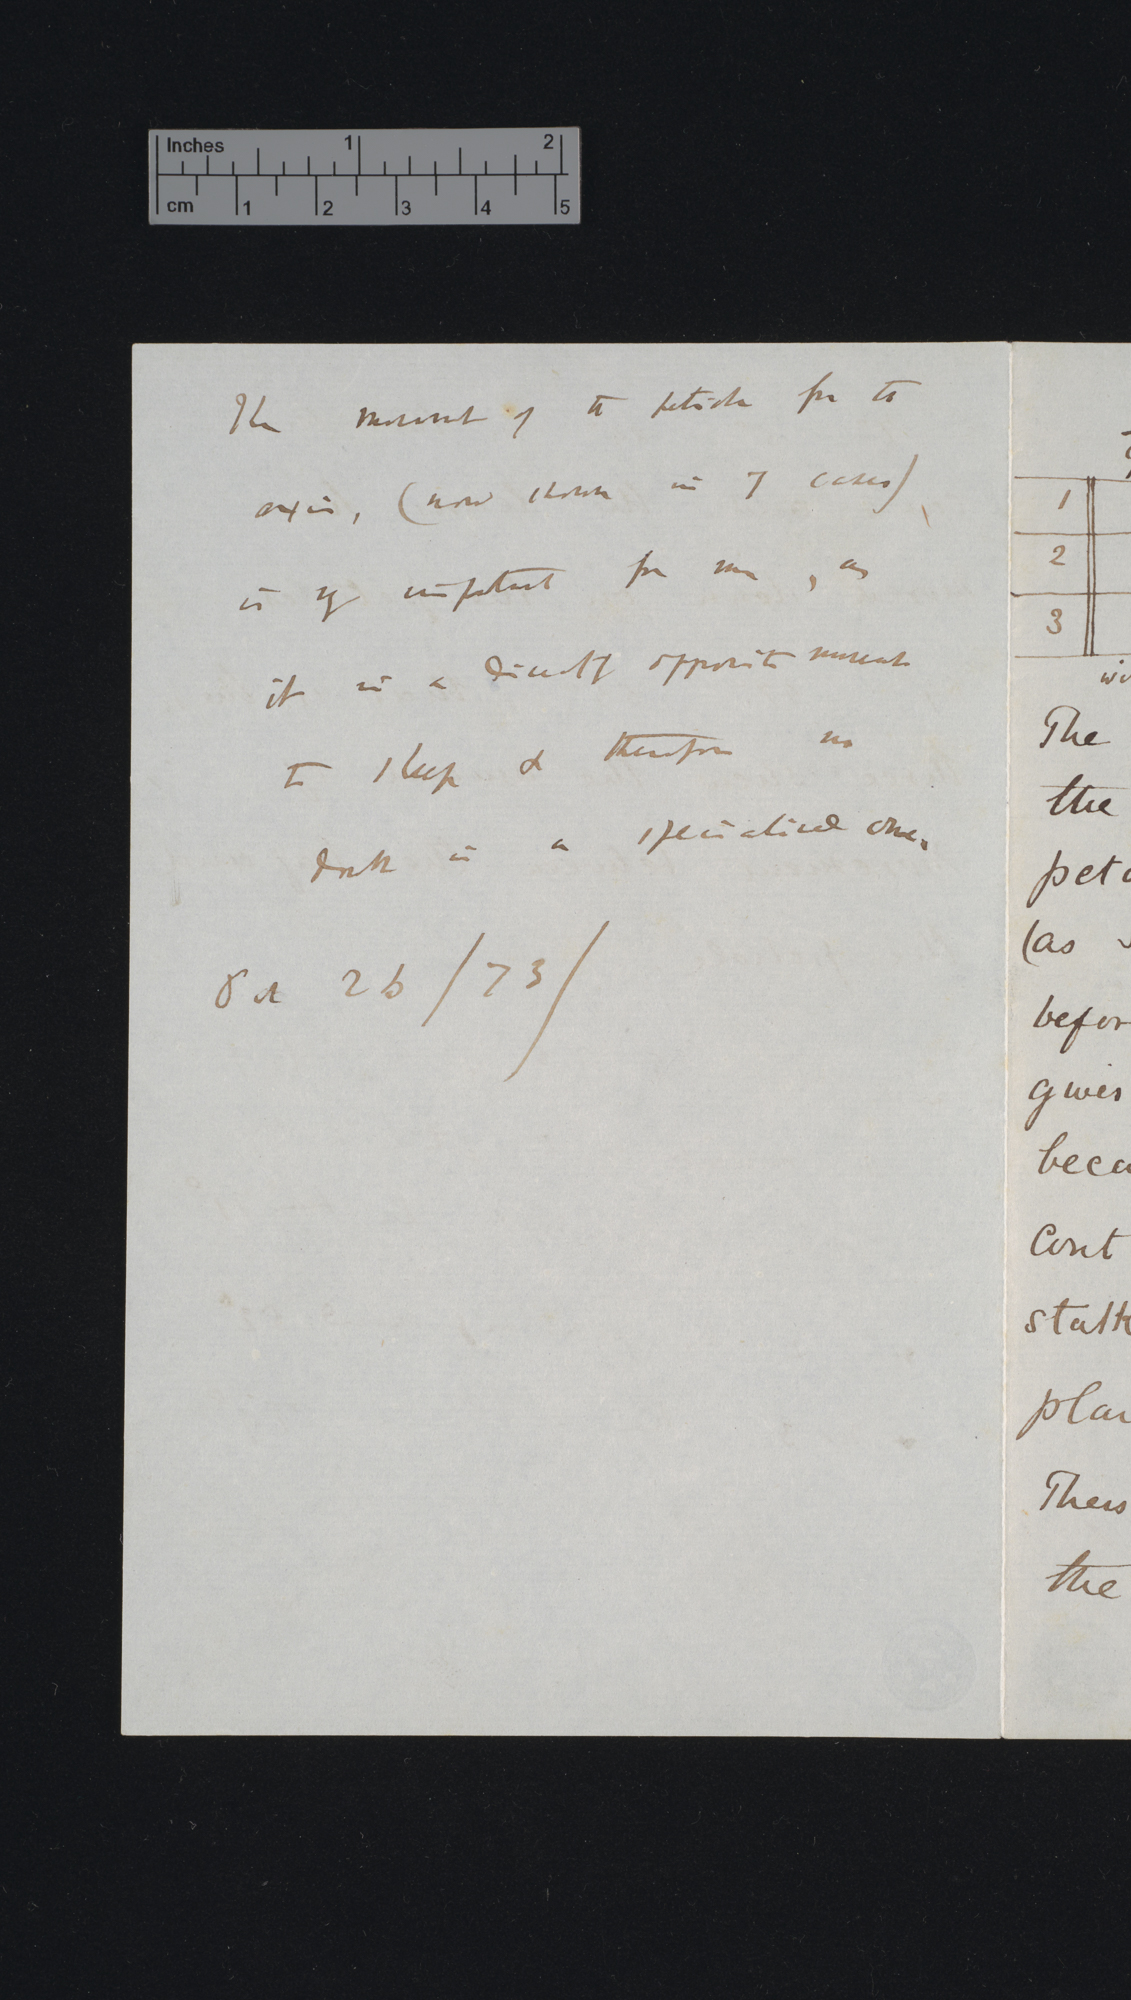 Inches 1 2
cm 1 2 3 4 5
The movemt of the petiole fm the
axis, (now shown in 7 cases)
is vy important for me, as
it is a directly opposite movemt
to sleep & therefore no
doubt is a specialised one.
Oct 26/73/
1
2
3
The
the
peta
(as
befor
gives
beca
Cont
stalk
plan
Thes
the